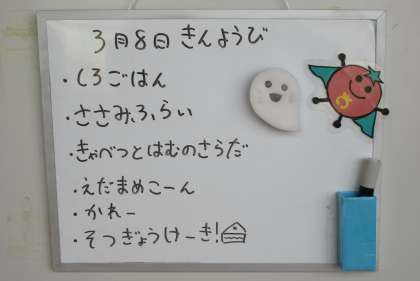 3月8日 きんようび
・しろごはん
・ささみ、ふ、らい
・きゃべつとはむのさらだ
・えだまめこーん
・かれー
・そつぎょうけーき!